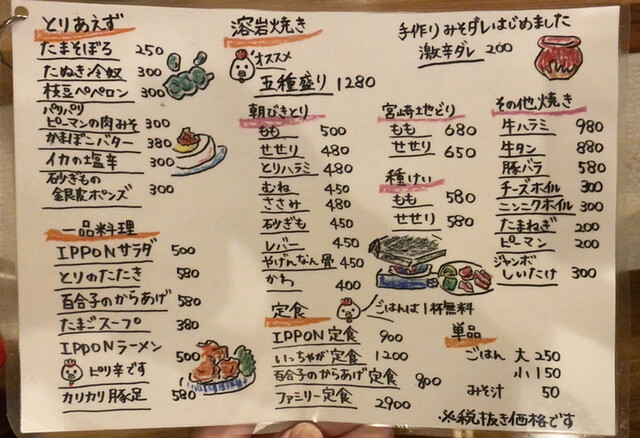 とりあえず
たまそぼろ 250
たぬき冷奴 300
枝豆ペペロン 300
パリパリ
ピーマンの肉みそ 300
かまぼこバター 380
イカの塩辛 300
砂ぎもの
銀皮ポンズ 300
一品料理
IPPONサラダ 500
とりのたたき 580
百合子のからあげ 580
たまごスープ 380
IPPONラーメン 500
ピリ辛です
カリカリ豚足 580
溶岩焼き
オススメ
五種盛り 1280
朝びきとり
もも 500
せせり 480
とりハラミ 480
むね 450
ささみ 480
砂ぎも 450
レバー 450
やげんなん骨 450
かわ 400
宮崎地どり
もも 680
せせり 650
種けい
もも 580
せせり 580
手作りみそダレはじめました
激辛ダレ 200
その他焼き
牛ハラミ 980
牛タン 880
豚バラ 580
チーズホイル 300
ニンニクホイル 300
たまねぎ 200
ピーマン 200
ジャンボ
しいたけ 300
定食
ごはんは1杯無料
IPPON定食 900
いっちゃが定食 1200
百合子のからあげ定食 800
ファミリー定食 2900
単品
ごはん 大 250
小 150
みそ汁 50
※税抜き価格です